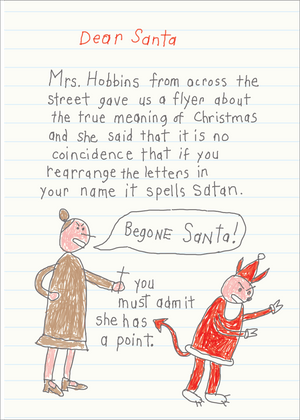 Dear Santa
Mrs. Hobbins from across the
street gave us a flyer about
the true meaning of Christmas
and she said that it is no
coincidence that if you
rearrange the letters in
your name it spells Satan.
Begone Santa!
you
must admit
she has
a point.